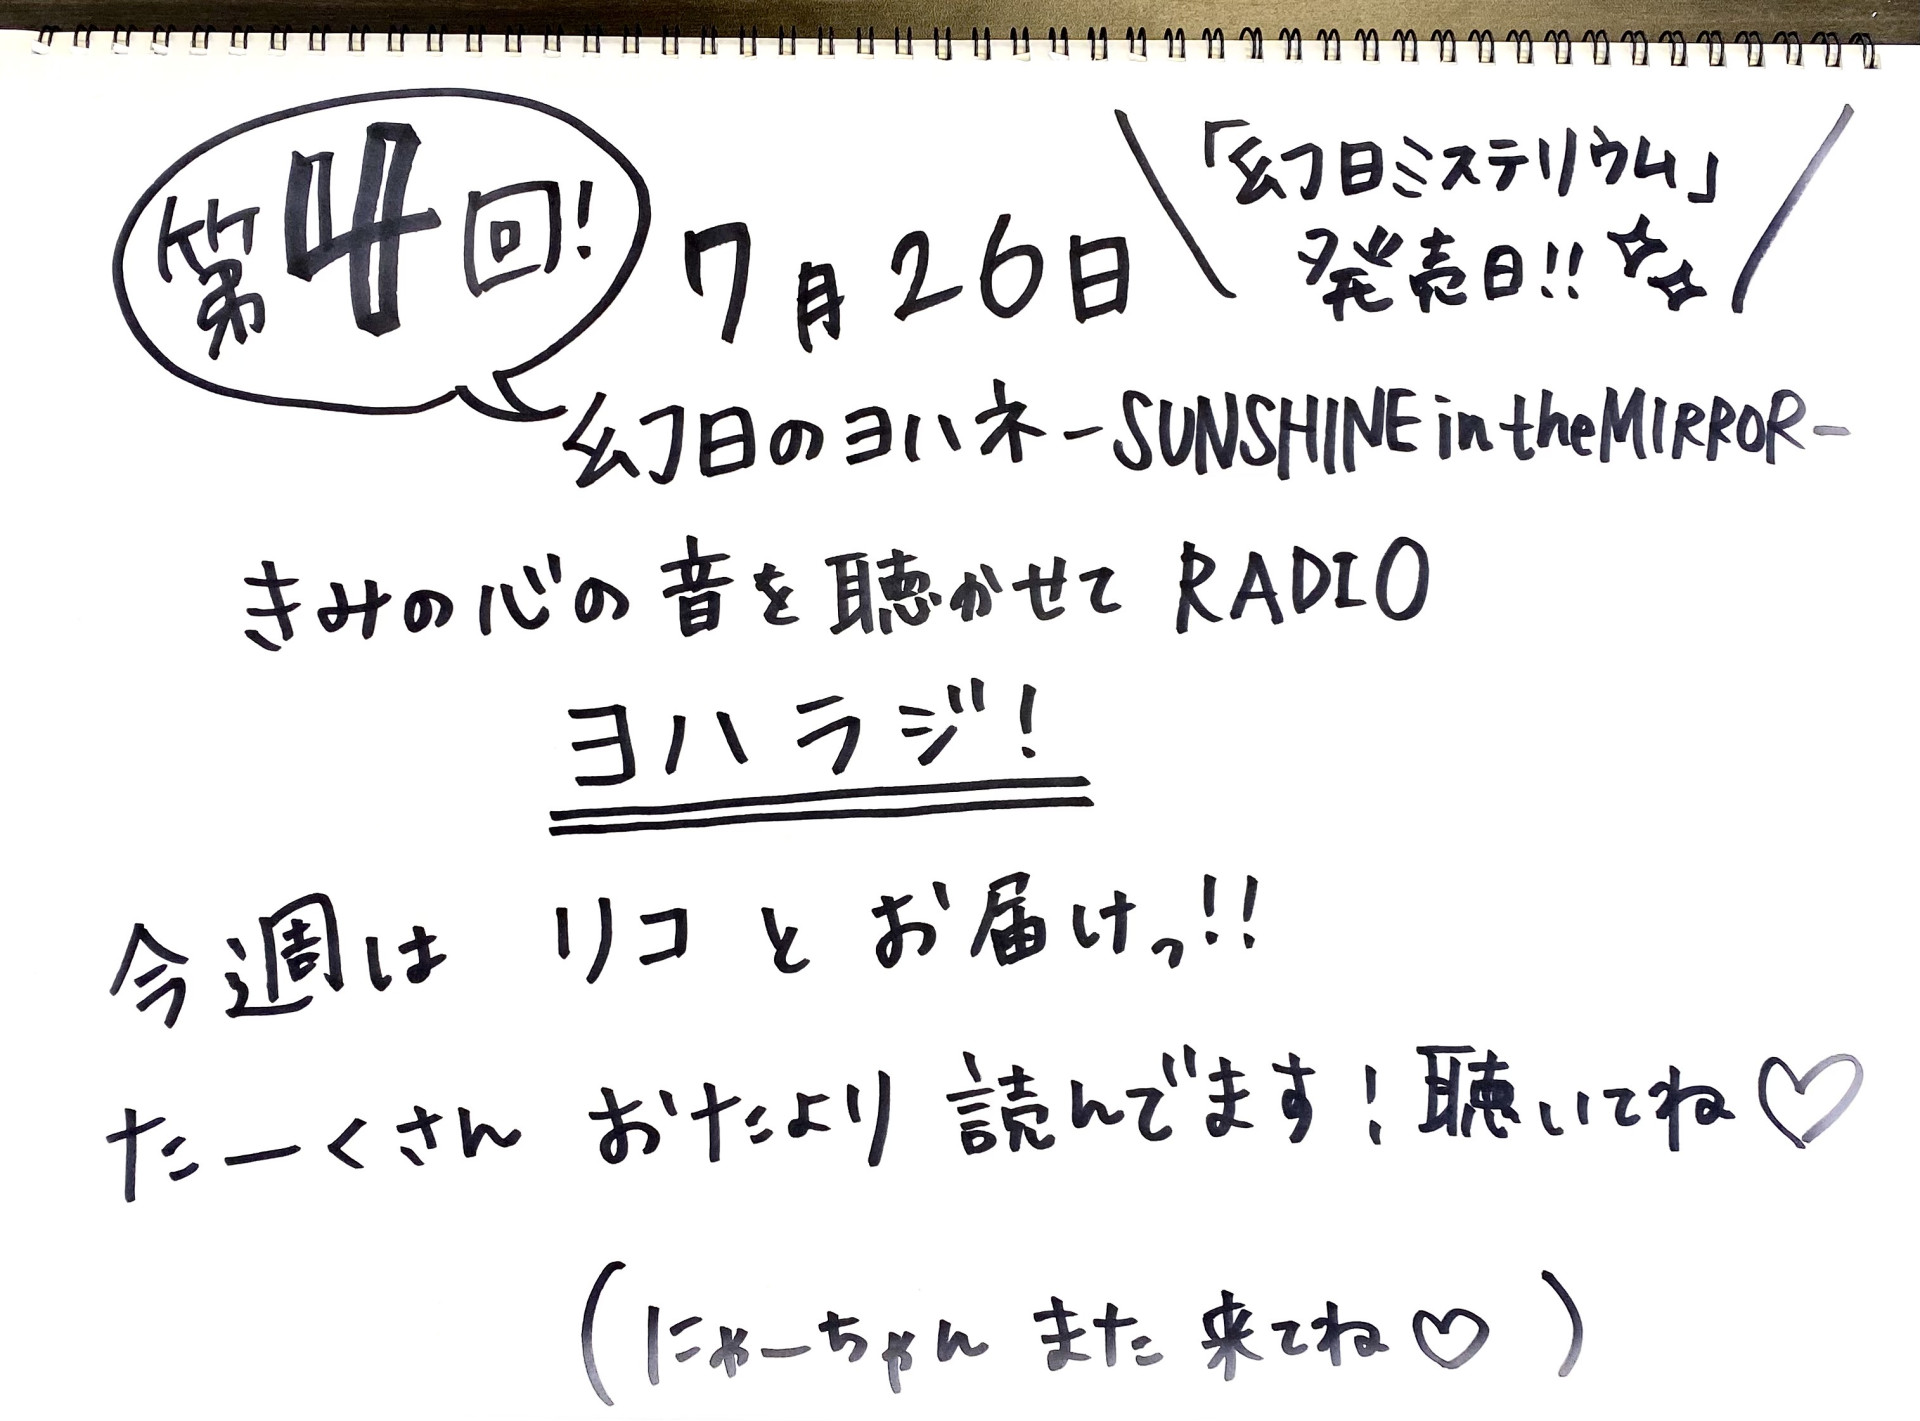 第4回!
7月26日
「幻日ミステリウム」
発売日!!
幻日のヨハネ-SUNSHINE in the MIRROR-
きみの心の音を聴かせて RADIO
ヨハラジ!
今週は リコ と お届けっ!!
たーくさん おたより 読んでます! 聴いてね♡
(にゃーちゃん また 来てね♡)